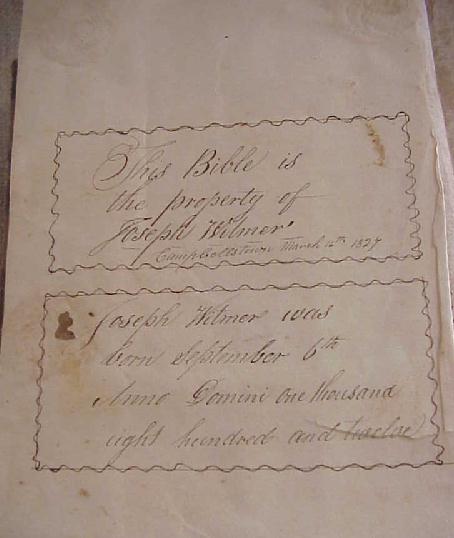 This Bible is
the property of
Joseph Witmer
Campbellstown March 12th 1837
Joseph Witmer was
born September 6th
Anno Domini one thousand
eight hundred and twelve